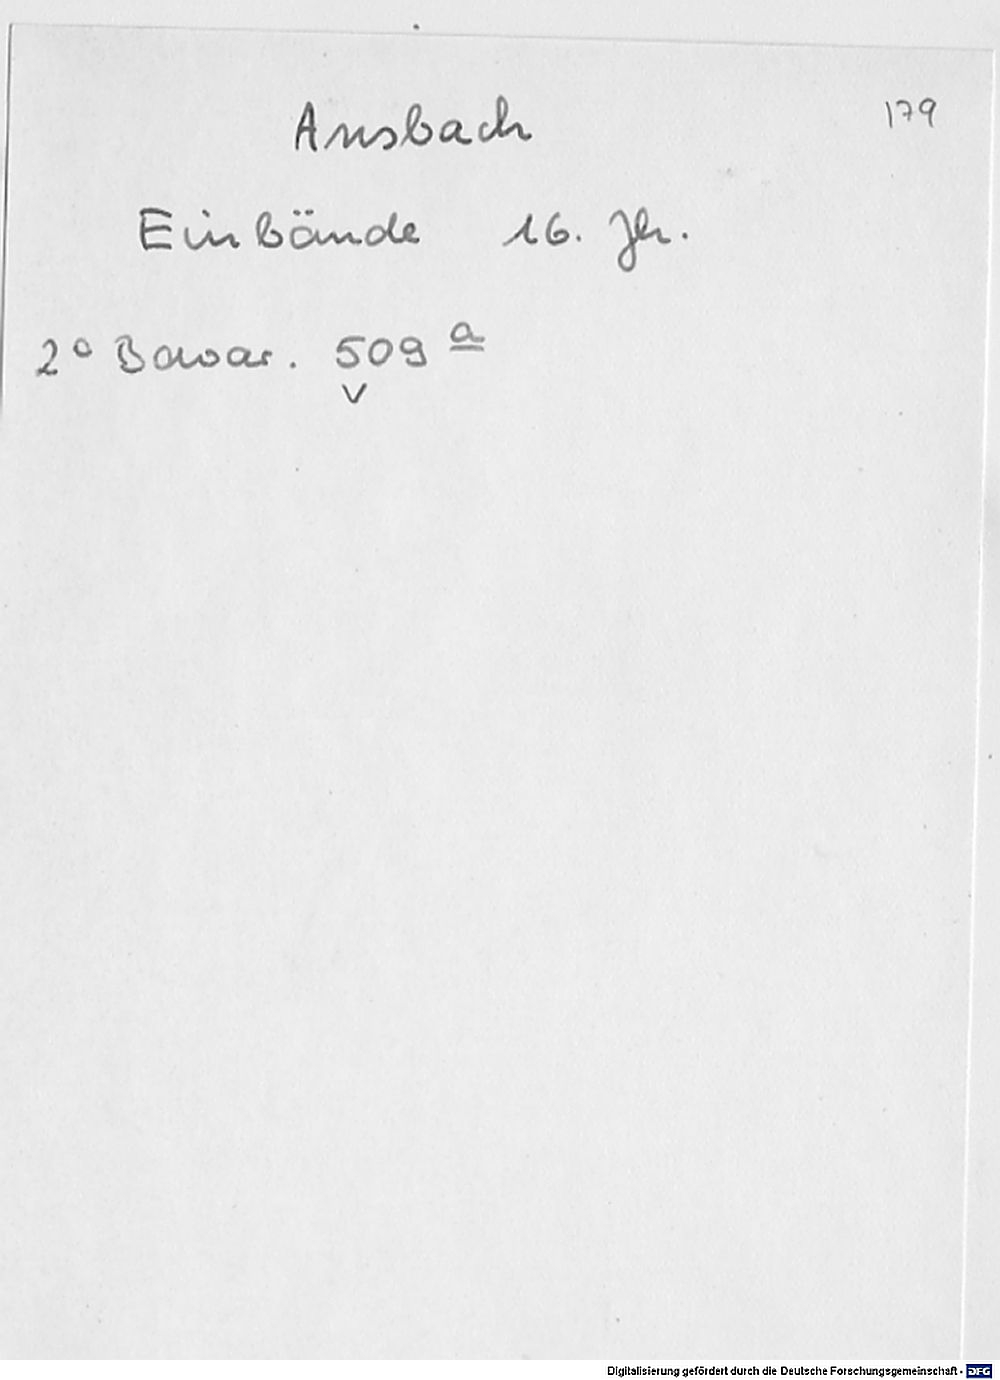 Ansbach 179
Einbände 16. Jh.
2° Bavar. 509 a
v
Digitalisierung gefördert durch die Deutsche Forschungsgemeinschaft - DFG